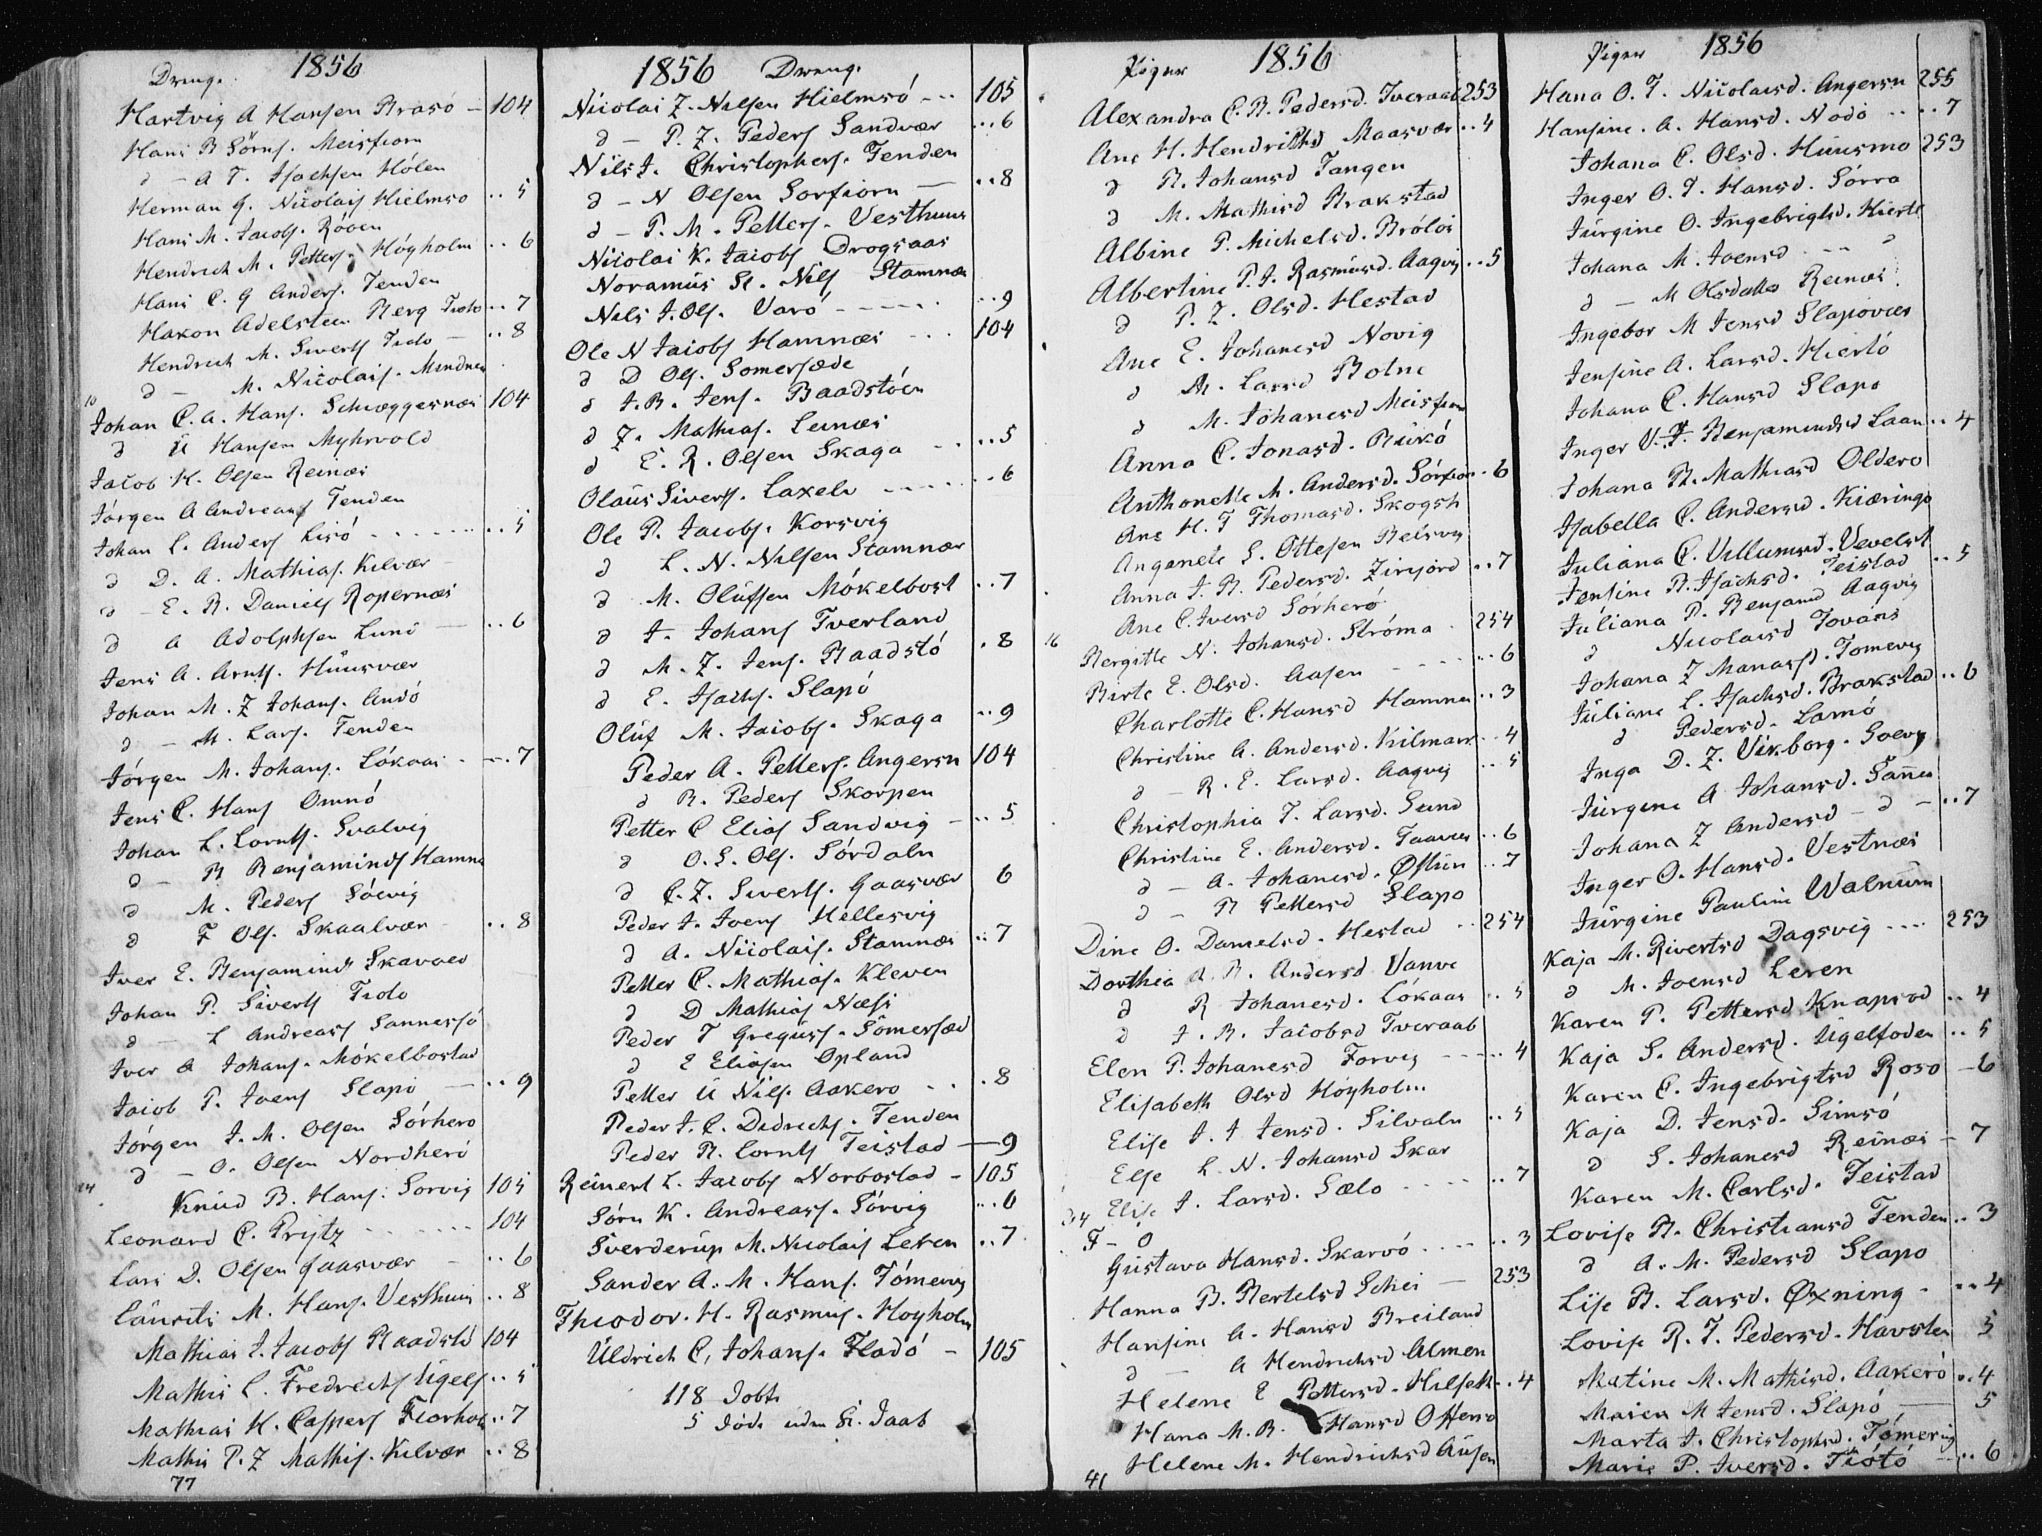 Drenge. 1856
Hartvig A Hansen Brasö – 104
Hans B Sörns. Meisfiorn
d – A T. Isachsen Hölen
Herman G. Nicolais Hielmsö .. 5
Hans M. Jacobs. Rööen
Hendrich M. Petters. Höyholm .. 6
Hans C. G Anders. Tenden
Haxon Adelsteen Berg Tiötö .. 7
Hendrich M. Siverts Tiötö – .. 8
d – M. Nicolais. Mindnes
10
Johan C. A. Hans. Schieggesnæs 104
d U Hansen Myhrvold
Jacob H. Olsen Reinæs
Jörgen A Andreas Tenden
Johan L. Anders Lisö .. 5
d D. A. Mathias. Kilvær
d – E. B. Daniels Ropernæs
d A Adolphsen Lund – .. 6
Jens A. Arnts. Huusvær
Johan M. Z Johans. Andö
d – M. Lars. Tenden
Jörgen M. Johans. Lökaas .. 7
Jens C. Hans Omnö
Johan L. Lornts. Svalvig
d – B Benjamins Hamnæ
d M. Peders Söevig
d F Ols. Skaalvær .. 8
Iver E. Benjamins Skavven
Johan P. Siverts Tiötö
d – L Andreass Sannessö
Iver A Johans. Mökelbostad
Jacob P. Joens Slapö – .. 9
Jörgen J. M. Olsen Sörherö
d – O. Olsen Nordherö
24
Knud B. Hans. Sorvig 105
Leonard C. Prytz 104
Lars D. Olsen Gaasvær .. 6
Laurits M. Hans. Vesthuus .. 8
Mathias J. Jacobs Baadstö 104
Mathis L. Fredrechs Ugels .. 5
Mathias H. Caspers Fiorhol .. 7
Mathis P. Z Mathis. Kilvær .. 8
77
1856 Dreng.
Nicolai Z. Nilsen Hielmsö --- 105
d – P. Z. Peders Sandvær ... 6
Nils J. Christophers. Tenden
d – N Olsen Sorfiorn – .. 8
d – P. M. Petters. Vesthuus
Nicolai K. Jacobs Drogsaas
Noramus St. Nils Stamnæs
Nils J. Ols. Varö ---- .. 9
Ole N Jacobs Hamnæs ... 104
d D Ols. Somersæde
d J. B. Jens. Baadstöen
d Z. Mathias. Leinæs
d E. R. Olsen Skaga .. 5
Olaus Siverts. Laxelv .. 6
Ole P. Jacobs. Korsvig
d L. N. Nilsen Stamnær
d M. Olufsen Mökelbost .. 7
d J. Johans Tverland
d M. Z. Jens. Baadstö . 8
d E. Isachs. Slapö
Oluf M. Jacobs. Skaga .. 9
Peder A. Petters. Angersn 104
d B. Peders Skorpen
Petter C Elias Sandvig – .. 5
d O. S. Ols. Sördaln
d C. Z. Siverts. Gaasvær 6
Peder J. Joens Hellesvig
d A. Nicolais. Stamnæs .. 7
Petter C. Mathias. Kleven
d D Mathias Næss
Peder T Gregus. Sömersæd
d E Eliasen Opland
Petter U Nils. Aakerö .. 8
Peder J. C. Didrichs. Tenden
Peder B. Lornts Teistad — 9
Reinert L. Jacobs Norbostad – 105
Sörn K. Andreass. Sörvig .. 6
Sverderup M. Nicolais Leken .. 7
Sander A. M. Hans. Tömerv
Theodor. H. Rasmus. Hoyholm
Uldrich C, Johans. Fladö – 105
118 Döbte
5 Död. uden Hi. Daab
Piger 1856
Alexandra C. B. Pedersd. Tveraab 253
Ane H. Hendrikd Maasvær .. 4
d B. Johansd Tangen
d M. Mathisd Brakstad
Albine P. Michelsd. Brölös
Albertine P. J. Rasmusd. Aagvig .. 5
d P. Z. Olsd. Hestad
Ane E. Johanesd Novig
d M. Larsd Botne
d M. Johanesd Meisfiorn
Anna C. Jonasd. Rukö
Anthonette M. Andersd. Sörfior .. 6
Ane H. T Thomasd. Skogsh
Anganete S. Ottesen Beisvig
Anna J. B. Pedersd. Zirijord .. 7
Ane C. Iversd Sörherö
16
Bergitte N. Johansd. Ströma . 254
Birte E. Olsd. Aasen .. 6
Charlotte C. Hansd Hamne .. 3
Christine A. Andersd. Kilmarr .. 4
d – R. E. Larsd. Aagvig .. 5
Christophia T. Larsd. Sund
Christine E. Andersd. Taaven .. 6
d – A. Johanesd. Østun .. 7
d – B Pettersd Slapö
Dine O. Danielsd. Hestad .. 254
Dorthea A. B. Andersd Vanve
d B Johanesd. Lökaas .. 5
d J. B. Jacobsd Tveraab
Elen P. Johanesd Forvig .. 4
Elisabeth Olsd Höyholm
Elise J. J Jensd. Silvaln .. 5
Else L. N. Johansd Skar
Elise J. Larsd. Sælö .. 7
F – O
Gustava Hansd. Skarvö .. 3
Hanna B. Bertelsd Schei – 253
Hansine A. Hansd Breiland
d – A Hendrichsd Almen
Helene E Pettersd. Hilsetr .. 4
Hana M. B. Hansd Offersø
Helene M. Hendrichsd Ausen
41
Piger 1856
Hana O. T. Nicolaisd. Angersn 255
Hansine. A. Hansd. Nodö .. 7
Johana C. Olsd. Huusmo 253
Inger O. P. Hansd. Sörra
Jürgine O. Ingebrigtsd. Hiertö
Johana M. Joensd -- d
d – M Olsdatter Reinæs
Ingebor M Jensd Slapövær
Jensine A. Larsd. Hiertö
Johana C. Hansd Slapö
Inger V. F. Benjaminsd Laan .. 4
Johana B. Mathiasd Olderö
Isabella C. Andersd. Kiæringö
Juliana C. Villumsd. Vevelst
Jensine B. Isachsd. Teistad .. 5
Juliana P. Benjamd Aagvig
d Nicolaisd Tovaas
Johana Z Manassd. Tomevig
Juliane L. Isachsd. Brakstad .. 6
d Pedersd. Lamö
Inga D. Z. Vikborg. Soevig
Jürgine A Johansd. Sannes
Johana Z Andersd – d – .. 7
Inger O. Hansd. Vestnæs
Jürgine Pauline Walnum
Kaja M. Sivertsd Dagsvig .... 253
d M. Joensd Leren
Karen P. Pettersd Knapsvd .. 4
Kaja S. Andersd. Ugelfoden .. 5
Karen C. Ingebrigtsd Rosö – 6
Kaja D. Jensd. Simsö
d S. Johanesd Reinæs – 7
Karen M. Carlsd. Teistad
Lovise B. Christiansd Tenden .. 3
d A. M. Pedersd Slapö
Lise B. Larsd. Øxning . .. 4
Lovise R. T. Pedersd. Havsten 5
Matine M. Mathisd. Aakerö .. 4
Maren M Jensd. Slapö – 5
Marta J. Christophsd. Tömervig
Marie P. Iversd. Tiötö .. 6